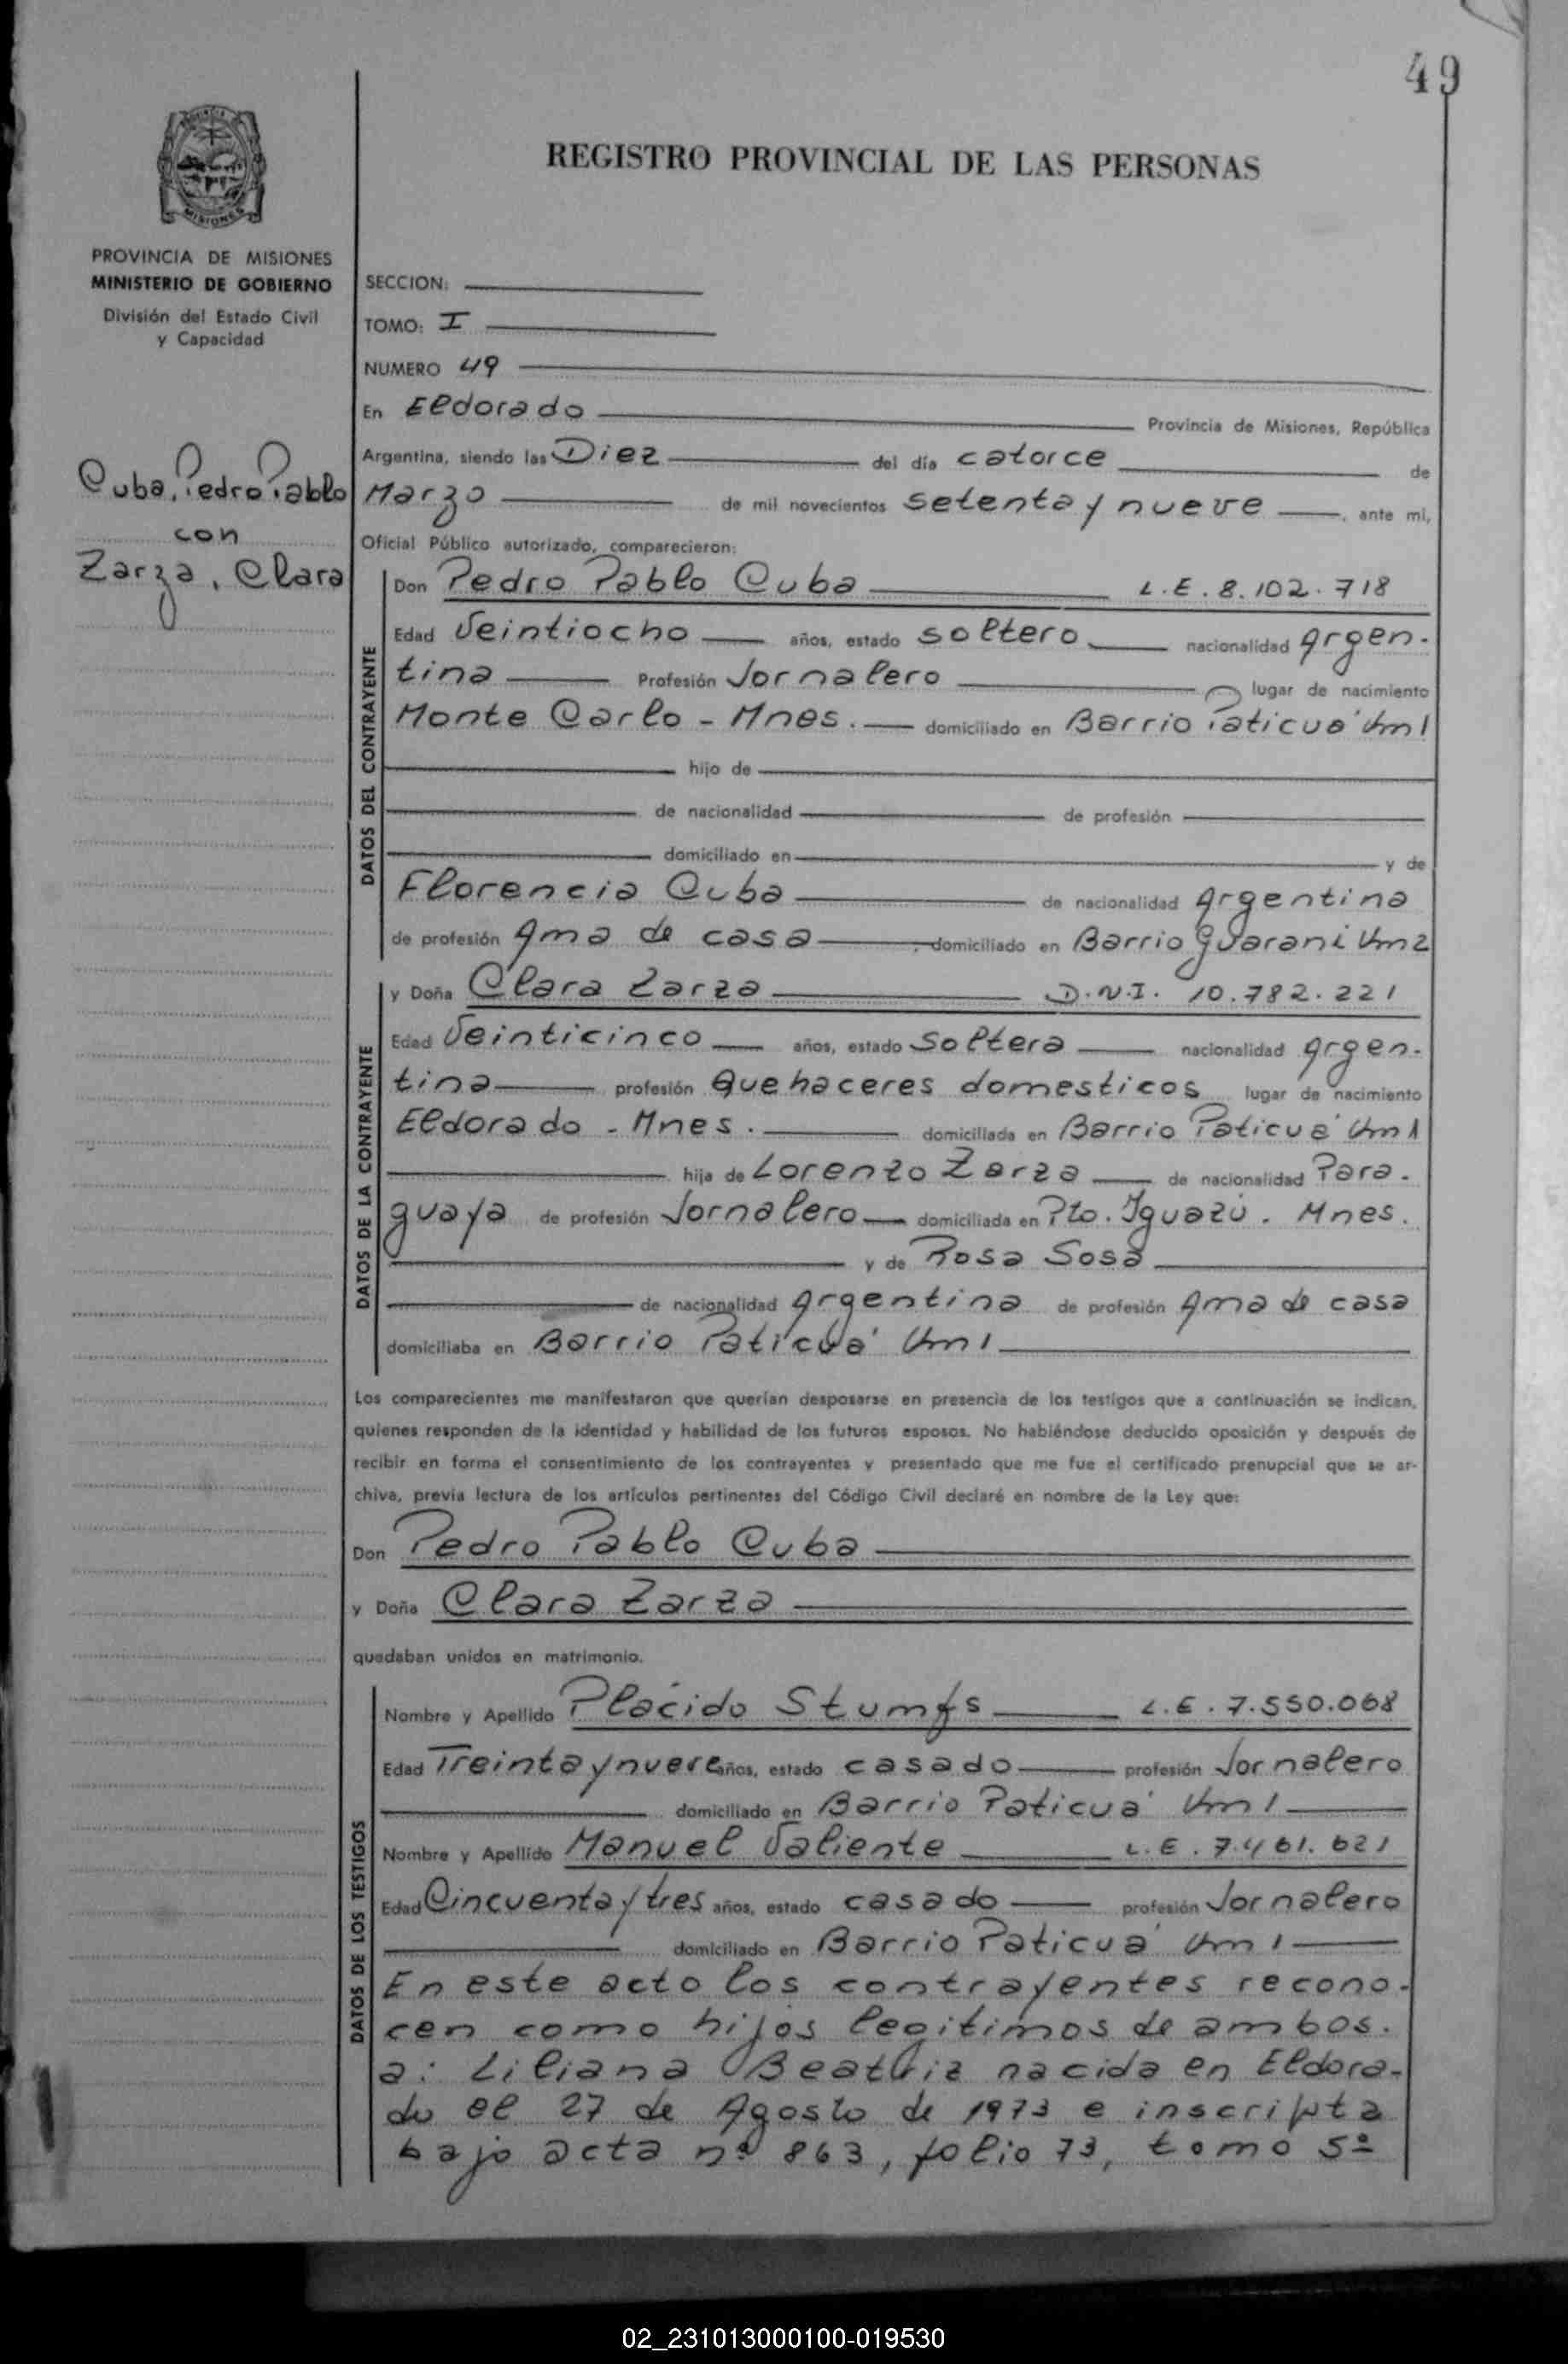 49
REGISTRO PROVINCIAL DE LAS PERSONAS
MISIONES
PROVINCIA DE MISIONES
MINISTERIO DE GOBIERNO
División del Estado Civil
y Capacidad
Cuba, Pedro Pablo
con
Zarza, Clara
SECCION:
TOMO: I
NUMERO 49
En Eldorado Provincia de Misiones, República
Argentina, siendo las Diez del día catorce de
Marzo de mil novecientos setenta y nueve, ante mi,
Oficial Público autorizado, comparecieron:
DATOS DEL CONTRAYENTE
Don Pedro Pablo Cuba L.E. 8.102.718
Edad Veintiocho años, estado soltero nacionalidad Argen-
tina Profesión Jornalero lugar de nacimiento
Monte Carlo - Mnes. domiciliado en Barrio Paticuá Km 1
hijo de
de nacionalidad de profesión
domiciliado en y de
Florencia Cuba de nacionalidad Argentina
de profesión Ama de casa, domiciliado en Barrio Guarani Km 2
DATOS DE LA CONTRAYENTE
y Doña Clara Zarza D.N.I. 10.782.221
Edad Veinticinco años, estado Soltera nacionalidad Argen-
tina profesión Quehaceres domesticos lugar de nacimiento
Eldorado - Mnes. domiciliada en Barrio Paticuá Km 1
hija de Lorenzo Zarza de nacionalidad Para-
guaya de profesión Jornalero domiciliada en Pto. Iguazú. Mnes.
y de Rosa Sosa
de nacionalidad Argentina de profesión Ama de casa
domiciliaba en Barrio Paticuá Km 1
Los comparecientes me manifestaron que querían desposarse en presencia de los testigos que a continuación se indican,
quienes responden de la identidad y habilidad de los futuros esposos. No habiéndose deducido oposición y después de
recibir en forma el consentimiento de los contrayentes y presentado que me fue el certificado prenupcial que se ar-
chiva, previa lectura de los artículos pertinentes del Código Civil declaré en nombre de la Ley que:
Don Pedro Pablo Cuba
y Doña Clara Zarza
quedaban unidos en matrimonio.
DATOS DE LOS TESTIGOS
Nombre y Apellido Plácido Stumfs L.E. 7.550.068
Edad Treinta y nueve años, estado casado profesión Jornalero
domiciliado en Barrio Paticuá Km 1
Nombre y Apellido Manuel Valiente L.E. 7.461.621
Edad Cincuenta y tres años, estado casado profesión Jornalero
domiciliado en Barrio Paticuá Km 1
En este acto los contrayentes recono-
cen como hijos legitimos de ambos.
a: Liliana Beatriz nacida en Eldora-
do el 27 de Agosto de 1973 e inscripta
bajo acta nº 863, folio 73, tomo 5º
02_231013000100-019530